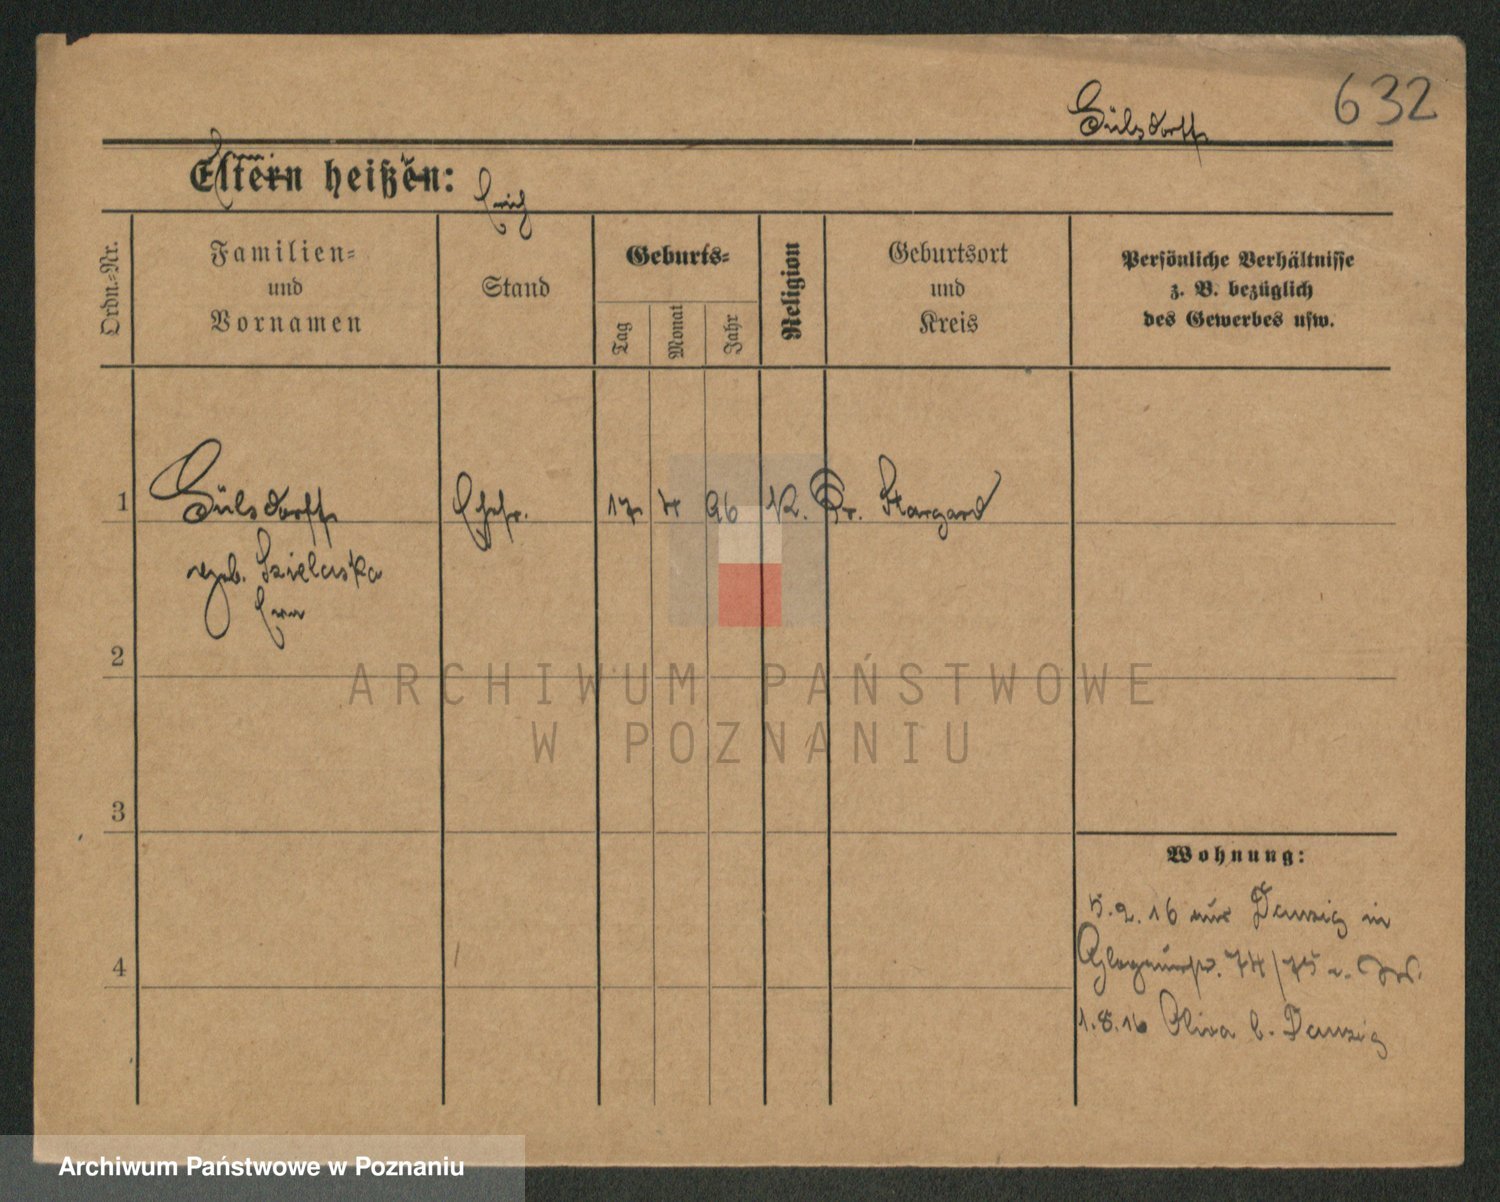 632
Gülsdorff
Eltern heißen:
Erich
Ordn.=Nr.
Familien=
und
Vornamen
Stand
Geburts=
Tag
Monat
Jahr
Religion
Geburtsort
und
Kreis
Persönliche Verhältnisse
z. B. bezüglich
des Gewerbes usw.
1
Gülsdorff Ehefr. 17 4 96 K. Kr. Stargard
geb. Szielaska
Eva
2
3
4
Wohnung:
5.2.16 aus Danzig in
74/75
1.8.16 Oliva b. Danzig
ARCHIWUM PAŃSTWOWE
W POZNANIU
Archiwum Państwowe w Poznaniu